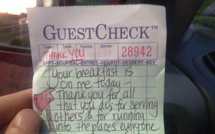 GUESTCHECK™
THANK YOU 28942
your breakfast is
on me today -
Thank you for all
that you do; for serving
others & for running
into the places everyone